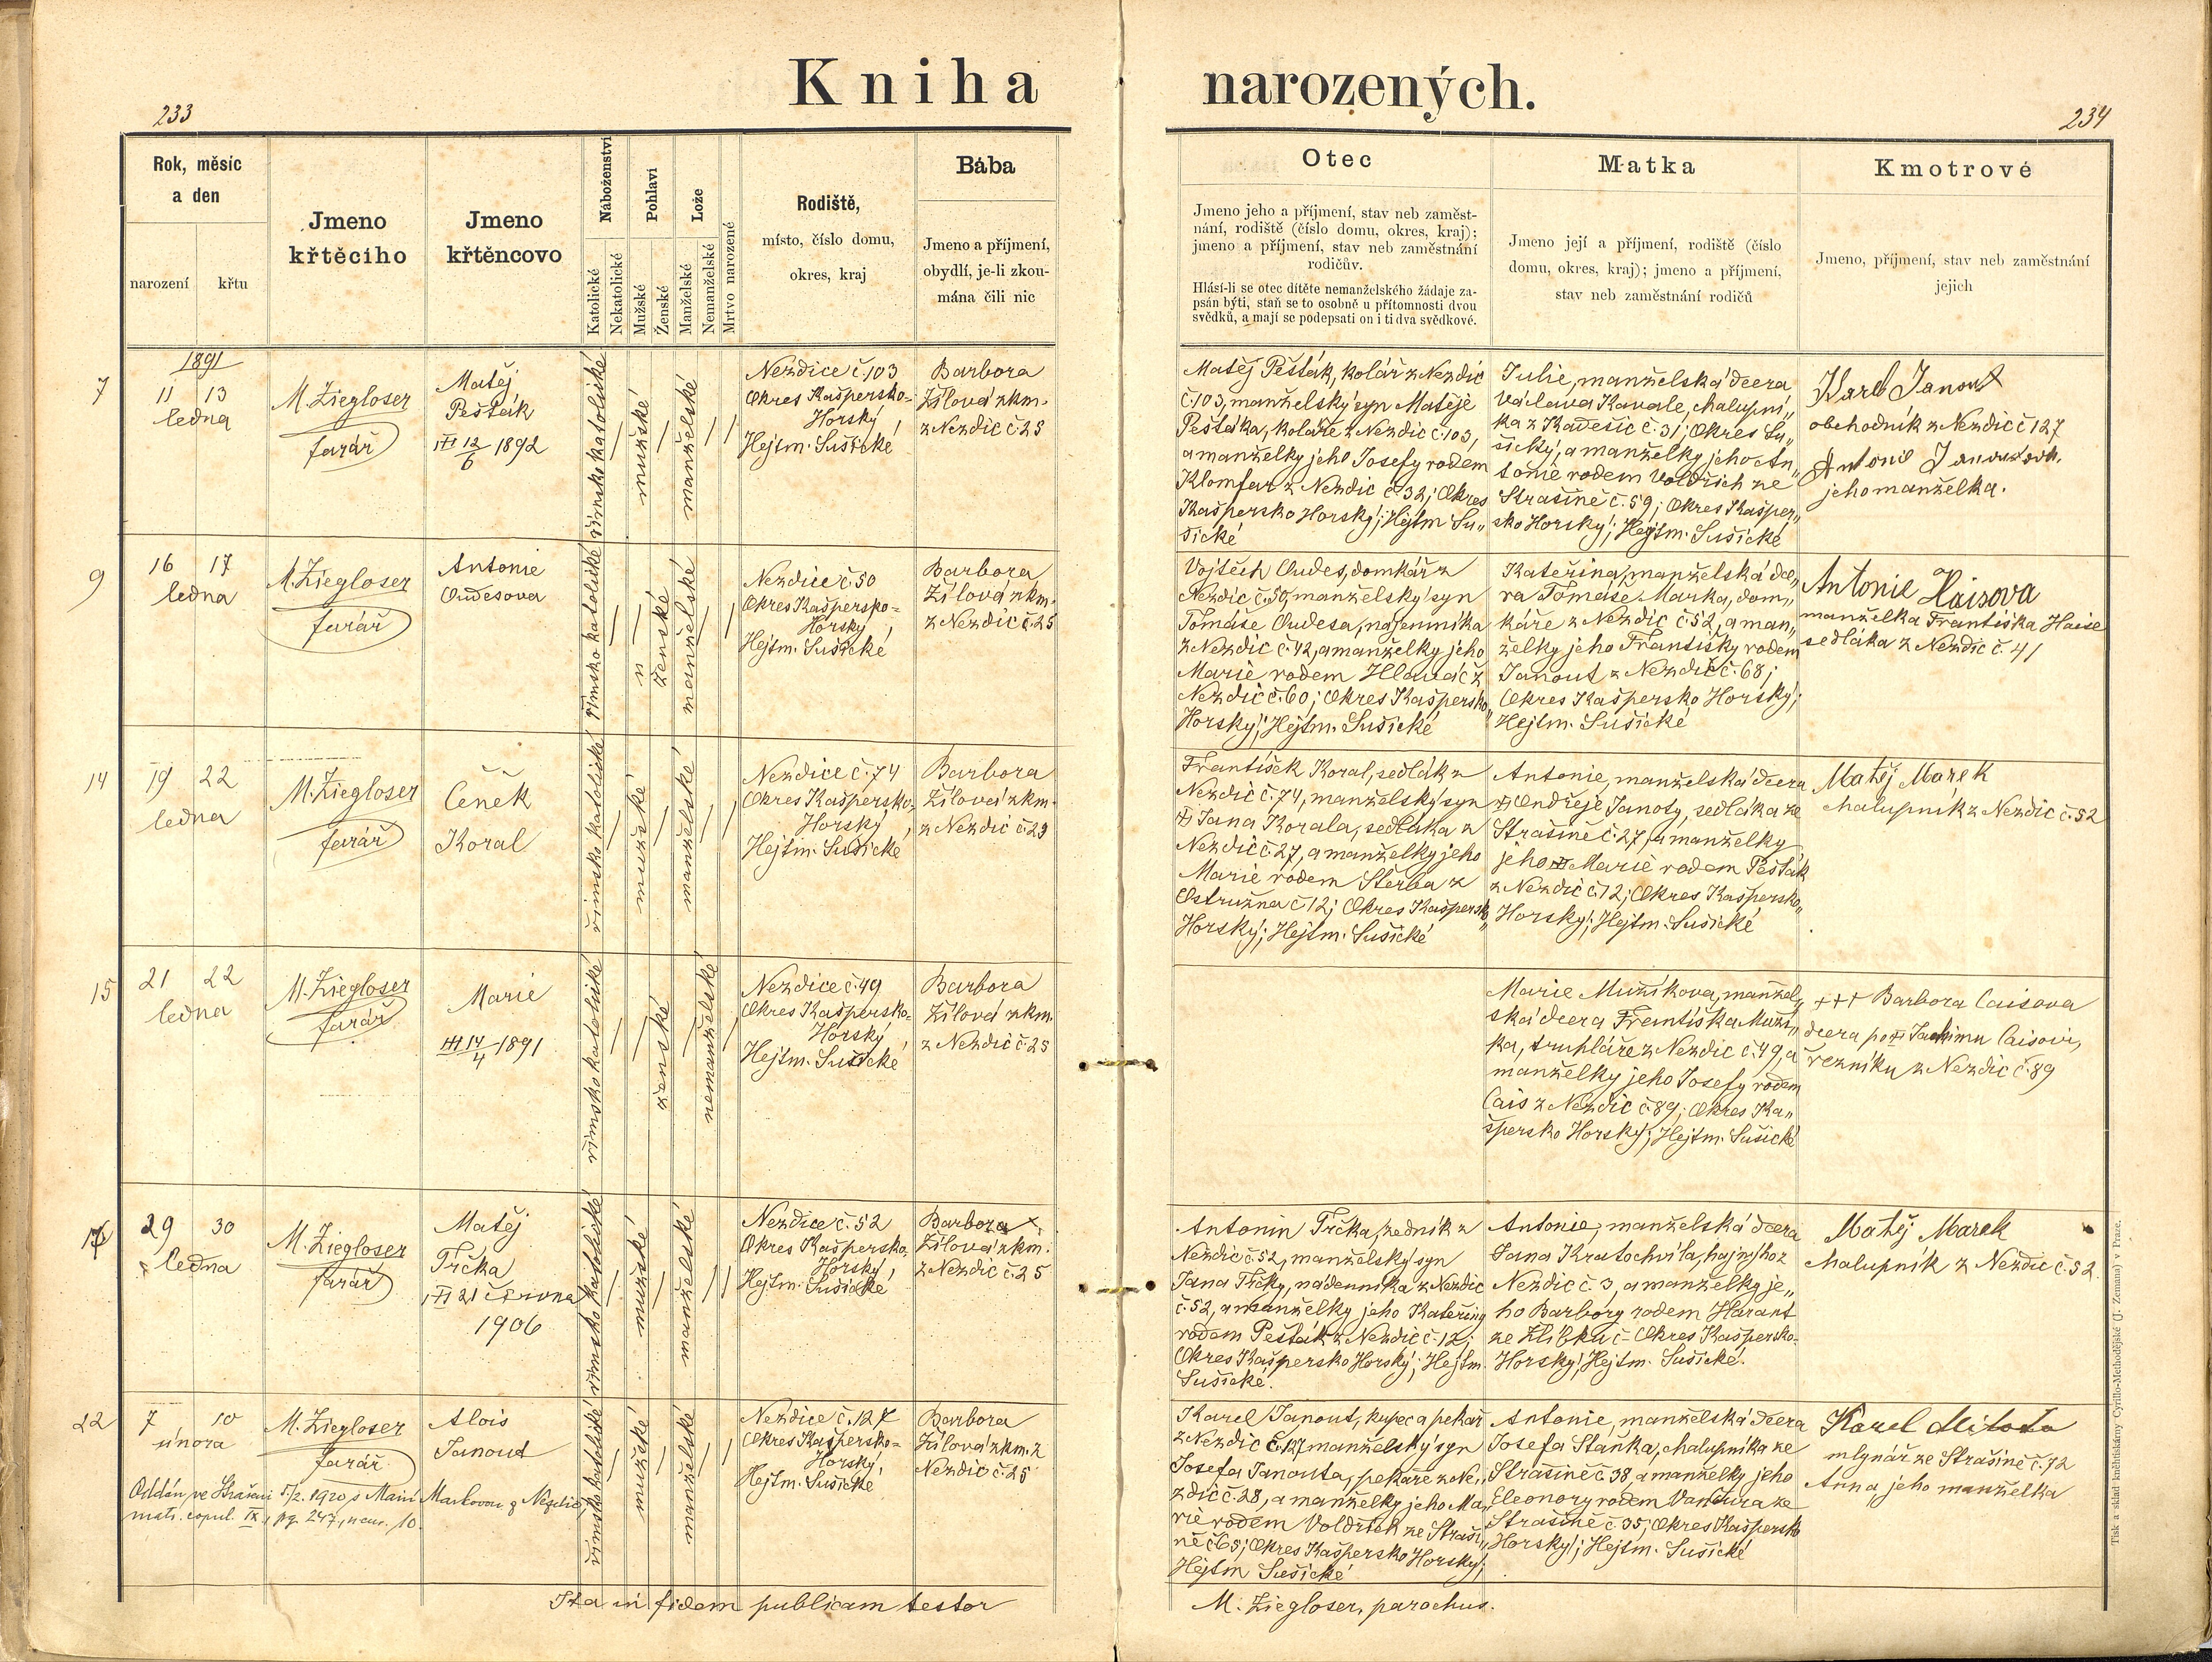 Kniha narozených.
233
234
Rok, měsíc
a den
narození
křtu
Jmeno
křtěcího
Jmeno
křtěncovo
Náboženství
Katolické
Nekatolické
Pohlaví
Mužské
Ženské
Lože
Manželské
Nemanželské
Mrtvo narozené
Rodiště,
místo, číslo domu,
okres, kraj
Bába
Jmeno a příjmení,
obydlí, je-li zkou-
mána čili nic
Otec
Jmeno jeho a příjmení, stav neb zaměst-
nání, rodiště (číslo domu, okres, kraj);
jmeno a příjmení, stav neb zaměstnání
rodičův.
Hlásí-li se otec dítěte nemanželského žádaje za-
psán býti, staň se to osobně u přítomnosti dvou
svědků, a mají se podepsati on i ti dva svědkové.
Matka
Jmeno její a příjmení, rodiště (číslo
domu, okres, kraj); jmeno a příjmení,
stav neb zaměstnání rodičů
Kmotrové
Jmeno, příjmení, stav neb zaměstnání
jejich
1891
7
11 13
ledna
M. Ziegloser
farář
Matěj
Pešták
12/6 1892
římsko katolické
mužské
manželské
Nezdice č. 103
Okres Kašpersko-
Horský,
Hejtm. Sušické
Barbora
Žílová zkm.
z Nezdic č. 25
Matěj Pešták, kolář z Nezdic
č. 103, manželský syn Matěje
Peštáka, koláře z Nezdic č. 103,
a manželky jeho Josefy rodem
Klomfar z Nezdic č. 32; Okres
Kašpersko Horský; Hejtm Su„
šické
Julie, manželská dcera
Václava Kavale, chalupní„
ka z Kadešic č. 31; Okres Su„
šický, a manželky jeho An„
tonie rodem Voldřich ze
Strašíně č. 59; Okres Kašper„
sko Horský; Hejtm. Sušické
Karel Janout
obchodník z Nezdic č 127
Antonie Janoutová
jeho manželka.
9
16 17
ledna
M. Ziegloser
farář
Antonie
Oudesova
římsko katolické
ženské
manželské
Nezdice č. 50
Okres Kašpersko-
Horský,
Hejtm. Sušické
Barbora
Žílová zkm.
z Nezdic č. 25
Vojtěch Oudes, domkář z
Nezdic č. 50, manželský syn
Tomáše Oudesa, nájemníka
z Nezdic č. 42, a manželky jeho
Marie rodem Hlaváč z
Nezdic č. 60; Okres Kašpersko„
Horský; Hejtm. Sušické
Kateřina, manželská dce„
ra Tomáše Marka, dom„
káře z Nezdic č. 52, a man„
želky jeho Františky rodem
Janout z Nezdic č. 68;
Okres Kašpersko Horský;
Hejtm. Sušické
Antonie Haisova
manželka Františka Haise
sedláka z Nezdic č. 41
14
19 22
ledna
M. Ziegloser
farář
Čeněk
Koral
římsko katolické
mužské
manželské
Nezdice č. 74
Okres Kašpersko-
Horský,
Hejtm. Sušické
Barbora
Žílová zkm.
z Nezdic č. 25
František Koral, sedlák z
Nezdic č. 74, manželský syn
Jana Korala, sedláka z
Nezdic č. 27, a manželky jeho
Marie rodem Štěrba z
Ostružna č 12; Okres Kašpersk„
Horský; Hejtm. Sušické
Antonie, manželská dcera
Ondřeje Janoty, sedláka ze
Strašíně č. 27, a manželky
jeho Marie rodem Pešták
z Nezdic č. 12; Okres Kašpersko„
Horský; Hejtm. Sušické
Matěj Marek
chalupník z Nezdic č. 52
15
21 22
ledna
M. Ziegloser
farář
Marie
14/4 1891
římsko katolické
ženské
nemanželské
Nezdice č. 49
Okres Kašpersko-
Horský
Hejtm. Sušické
Barbora
Žílová zkm.
z Nezdic č. 25
Marie Mužíkova, manžel„
ská dcera Františka Muží„
ka, truhláře z Nezdic č. 49, a
manželky jeho Josefy rodem
Cais z Nezdic č. 89; Okres Ka„
špersko Horský; Hejtm. Sušické
+++ Barbora Caisova
dcera po Jachimu Caisovi,
řezníku z Nezdic č. 89
29 30
ledna
M. Ziegloser
farář
Matěj
Trčka
21 června
1906
římsko katolické
mužské
manželské
Nezdice č. 52
Okres Kašpersko-
Horský,
Hejtm. Sušické
Barbora
Žílová zkm.
z Nezdic č. 25
Antonin Trčka, zedník z
Nezdic č. 52, manželský syn
Jana Trčky, nádenníka z Nezdic
č. 52, a manželky jeho Kateřiny
rodem Pešták z Nezdic č. 12;
Okres Kašpersko Horský; Hejtm.
Sušické.
Antonie, manželská dcera
Jana Kratochvíla, hajného z
Nezdic č. 3, a manželky je„
ho Barbory rodem Harant
ze Zlíbku č - Okres Kašpersko-
Horský; Hejtm. Sušické.
Matěj Marek
chalupník z Nezdic č. 52.
22
7 10
února
M. Ziegloser
farář
Alois
Janout
římsko katolické
mužské
manželské
Nezdice č. 127
Okres Kašpersko-
Horský,
Hejtm. Sušické
Barbora
Žílová zkm. z
Nezdic č. 25
Oddán ve Strašíni 5/2. 1920 s Marií Markovou z Nezdic,
matr. copul. IX, pg. 247, num. 10.
Karel Janout, kupec a pekař
z Nezdic č. 127, manželský syn
Josefa Janouta, pekaře z Ne„
zdic č. 28, a manželky jeho Ma„
rie rodem Voldřich ze Straší„
ně č 65; Okres Kašpersko Horský;
Hejtm Sušické
Antonie, manželská dcera
Josefa Staňka, chalupníka ze
Strašíně č. 38, a manželky jeho
Eleonory rodem Vančura ze
Strašíně č. 35; Okres Kašpersko
Horský; Hejtm. Sušické
Karel Mitota
mlynář ze Strašíně č. 72
Anna jeho manželka
Ita in fidem publicam testor
M. Ziegloser, parochus.
Tisk a sklad knihtiskárny Cyrillo-Methodějské (J. Zeman) v Praze.